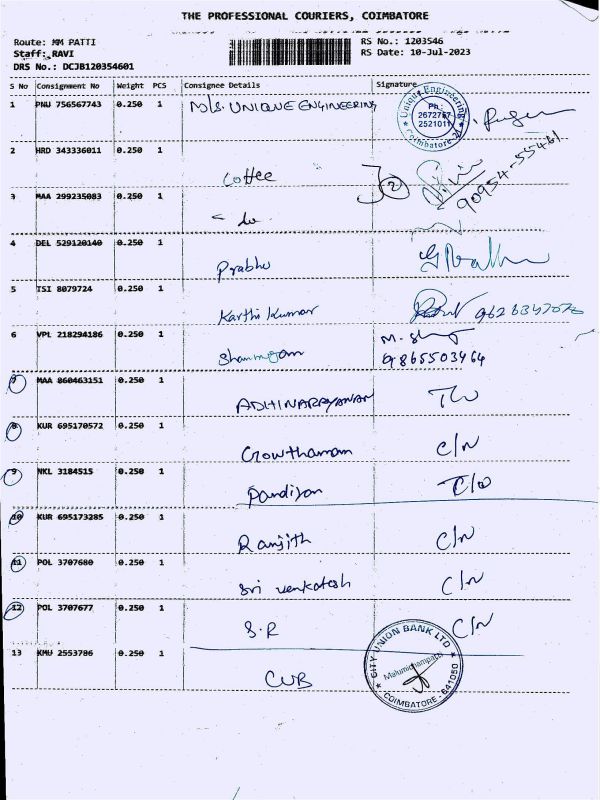 THE PROFESSIONAL COURIERS, COIMBATORE
Route: MM PATTI
Staff: RAVI
DRS No.: DCJB120354601
RS No.: 1203546
RS Date: 10-Jul-2023
S No Consignment No Weight PCS Consignee Details Signature
1 PNU 756567743 0.250 1 M/S. UNIQUE ENGINEERING
Unique Engineering
Ph:
2672767
2521011
Coimbatore-21
2 HRD 343336011 0.250 1 Coffee
2
90954-55461
3 MAA 299235083 0.250 1 - do
4 DEL 529120140 0.250 1 Prabhu
5 TSI 8079724 0.250 1 Karthi Kumar 9626347076
6 VPL 218294186 0.250 1 Shanmugam M. Sh
9865503464
7 MAA 860463151 0.250 1 ADHINARAYANAN
8 KUR 695170572 0.250 1 Gowthamam C/N
9 NKL 3184515 0.250 1 Pandiyan
10 KUR 695173285 0.250 1 Ranjith C/N
11 POL 3707680 0.250 1 Sri Venkatesh C/N
12 POL 3707677 0.250 1 S.R C/N
13 KMU 2553786 0.250 1 CUB
CITY UNION BANK LTD
Malumichampatti
COIMBATORE - 641050